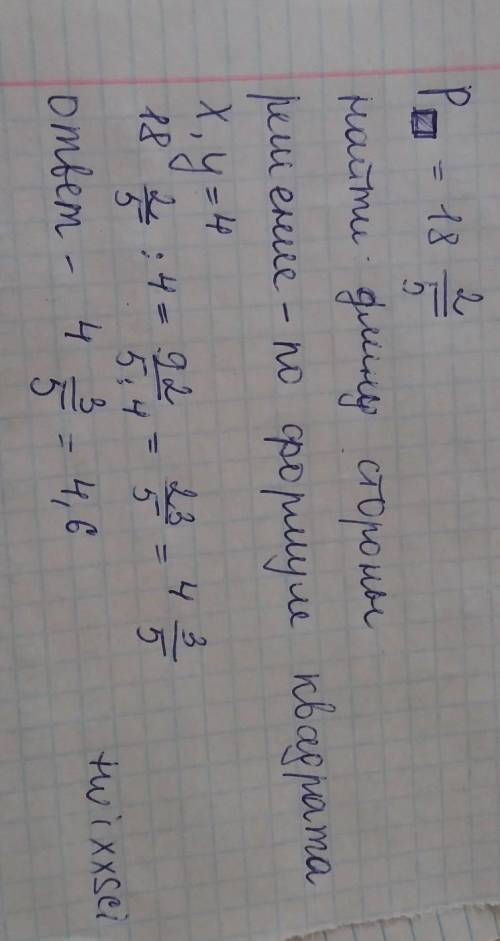 P□ = 18 2/5
найти длину стороны
решение - по формуле квадрата
x, y = 4
18 2/5 : 4 = 92/5 : 4 = 23/5 = 4 3/5
ответ - 4 3/5 = 4,6
twixxsci